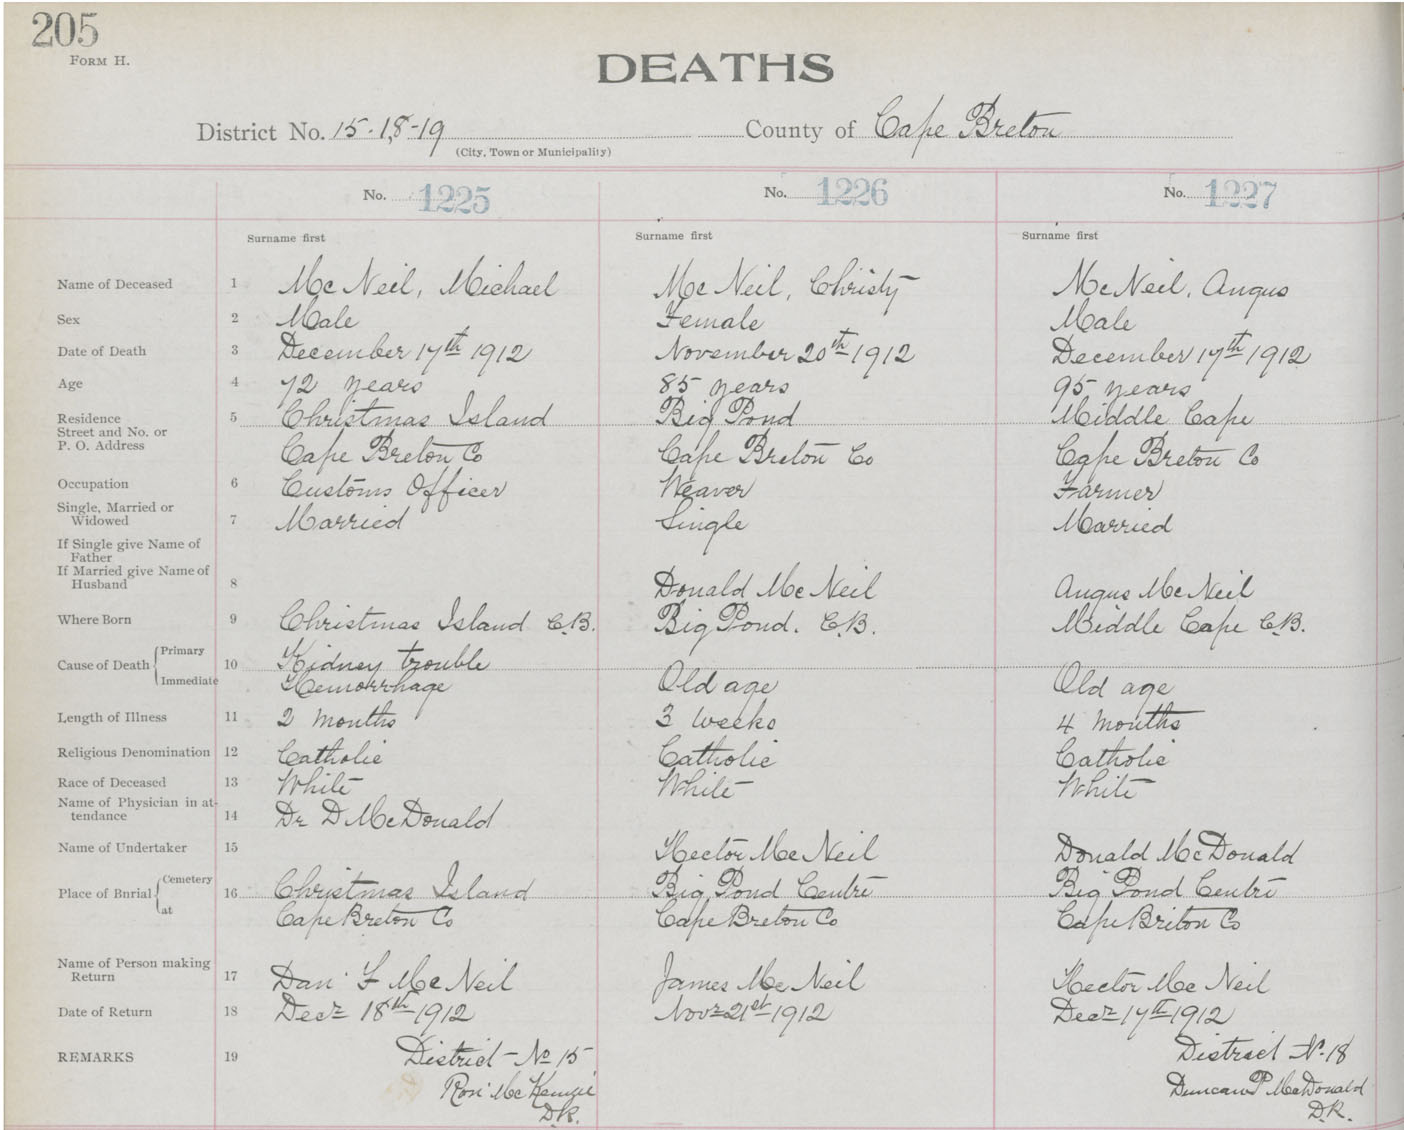 205
FORM H.
DEATHS
District No. 15-18-19
County of Cape Breton
(City, Town or Municipality)
No. 1225 No. 1226 No. 1227
Surname first Surname first Surname first
Name of Deceased 1 McNeil, Michael McNeil, Christy McNeil, Angus
Sex 2 Male Female Male
Date of Death 3 December 17th 1912 November 20th 1912 December 17th 1912
Age 4 72 years 85 years 95 years
Residence 5 Christmas Island Big Pond Middle Cape
Street and No. or
P. O. Address Cape Breton Co Cape Breton Co Cape Breton Co
Occupation 6 Customs Officer Weaver Farmer
Single, Married or
Widowed 7 Married Single Married
If Single give Name of
Father
If Married give Name of
Husband 8 Donald McNeil Angus McNeil
Where Born 9 Christmas Island C.B. Big Pond. C.B. Middle Cape C.B.
Cause of Death Primary 10 Kidney trouble
Immediate Hemorrhage Old age Old age
Length of Illness 11 2 months 3 weeks 4 months
Religious Denomination 12 Catholic Catholic Catholic
Race of Deceased 13 White White White
Name of Physician in at-
tendance 14 Dr D McDonald
Name of Undertaker 15 Hector McNeil Donald McDonald
Place of Burial Cemetery 16 Christmas Island Big Pond Centre Big Pond Centre
at Cape Breton Co Cape Breton Co Cape Briton Co
Name of Person making
Return 17 Dan F McNeil James McNeil Hector McNeil
Date of Return 18 Decr 18th 1912 Novr 21st 1912 Decr 17th 1912
REMARKS 19 District No 15 District No 18
Rori McKenzie Duncan P McDonald
D.R. D.R.